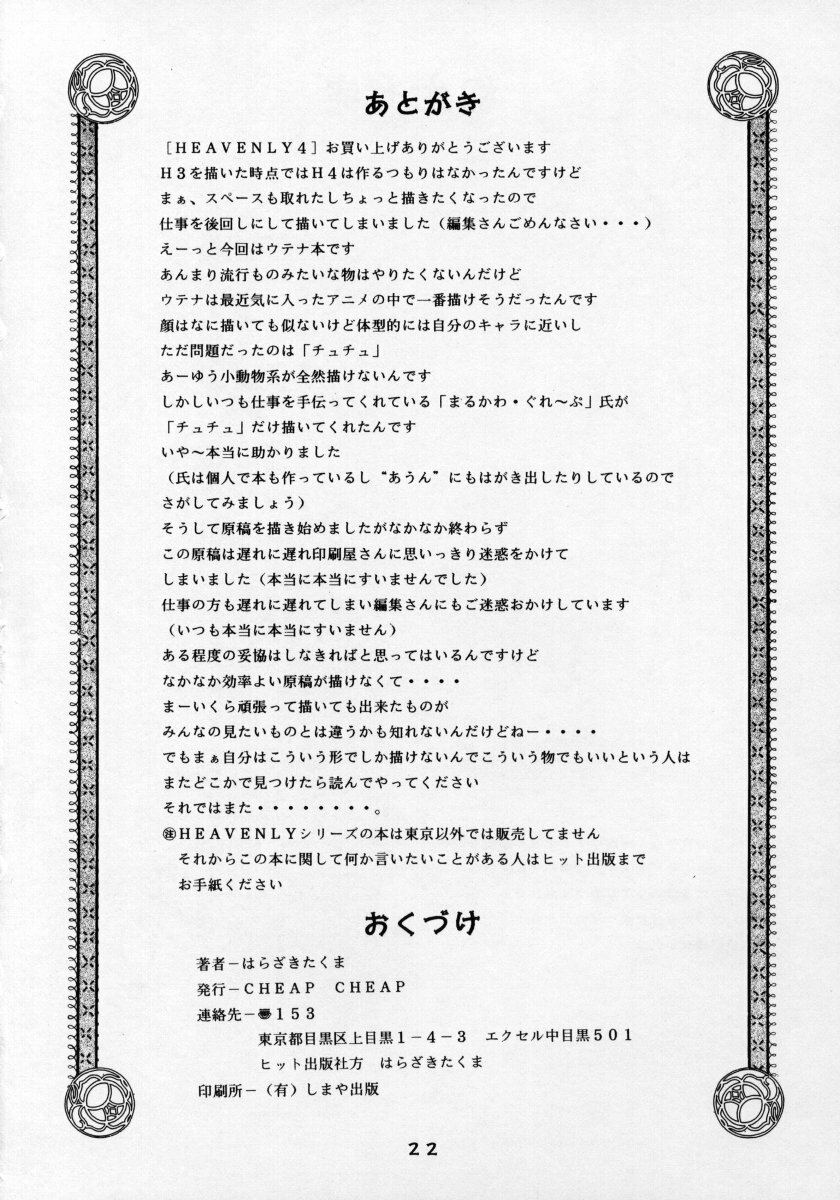 あとがき
［ＨＥＡＶＥＮＬＹ４］お買い上げありがとうございます
Ｈ３を描いた時点ではＨ４は作るつもりはなかったんですけど
まぁ、スペースも取れたしちょっと描きたくなったので
仕事を後回しにして描いてしまいました（編集さんごめんなさい・・・）
えーっと今回はウテナ本です
あんまり流行ものみたいな物はやりたくないんだけど
ウテナは最近気に入ったアニメの中で一番描けそうだったんです
顔はなに描いても似ないけど体型的には自分のキャラに近いし
ただ問題だったのは「チュチュ」
あーゆう小動物系が全然描けないんです
しかしいつも仕事を手伝ってくれている「まるかわ・ぐれ〜ぷ」氏が
「チュチュ」だけ描いてくれたんです
いや〜本当に助かりました
（氏は個人で本も作っているし“あうん”にもはがき出したりしているので
さがしてみましょう）
そうして原稿を描き始めましたがなかなか終わらず
この原稿は遅れに遅れ印刷屋さんに思いっきり迷惑をかけて
しまいました（本当に本当にすいませんでした）
仕事の方も遅れに遅れてしまい編集さんにもご迷惑おかけしています
（いつも本当に本当にすいません）
ある程度の妥協はしなきればと思ってはいるんですけど
なかなか効率よい原稿が描けなくて・・・・
まーいくら頑張って描いても出来たものが
みんなの見たいものとは違うかも知れないんだけどねー・・・・
でもまぁ自分はこういう形でしか描けないんでこういう物でもいいという人は
またどこかで見つけたら読んでやってください
それではまた・・・・・・・・。
㊟ＨＥＡＶＥＮＬＹシリーズの本は東京以外では販売してません
それからこの本に関して何か言いたいことがある人はヒット出版まで
お手紙ください
おくづけ
著者－はらざきたくま
発行－ＣＨＥＡＰ　ＣＨＥＡＰ
連絡先－〠１５３
東京都目黒区上目黒１－４－３　エクセル中目黒５０１
ヒット出版社方　はらざきたくま
印刷所－（有）しまや出版
２２